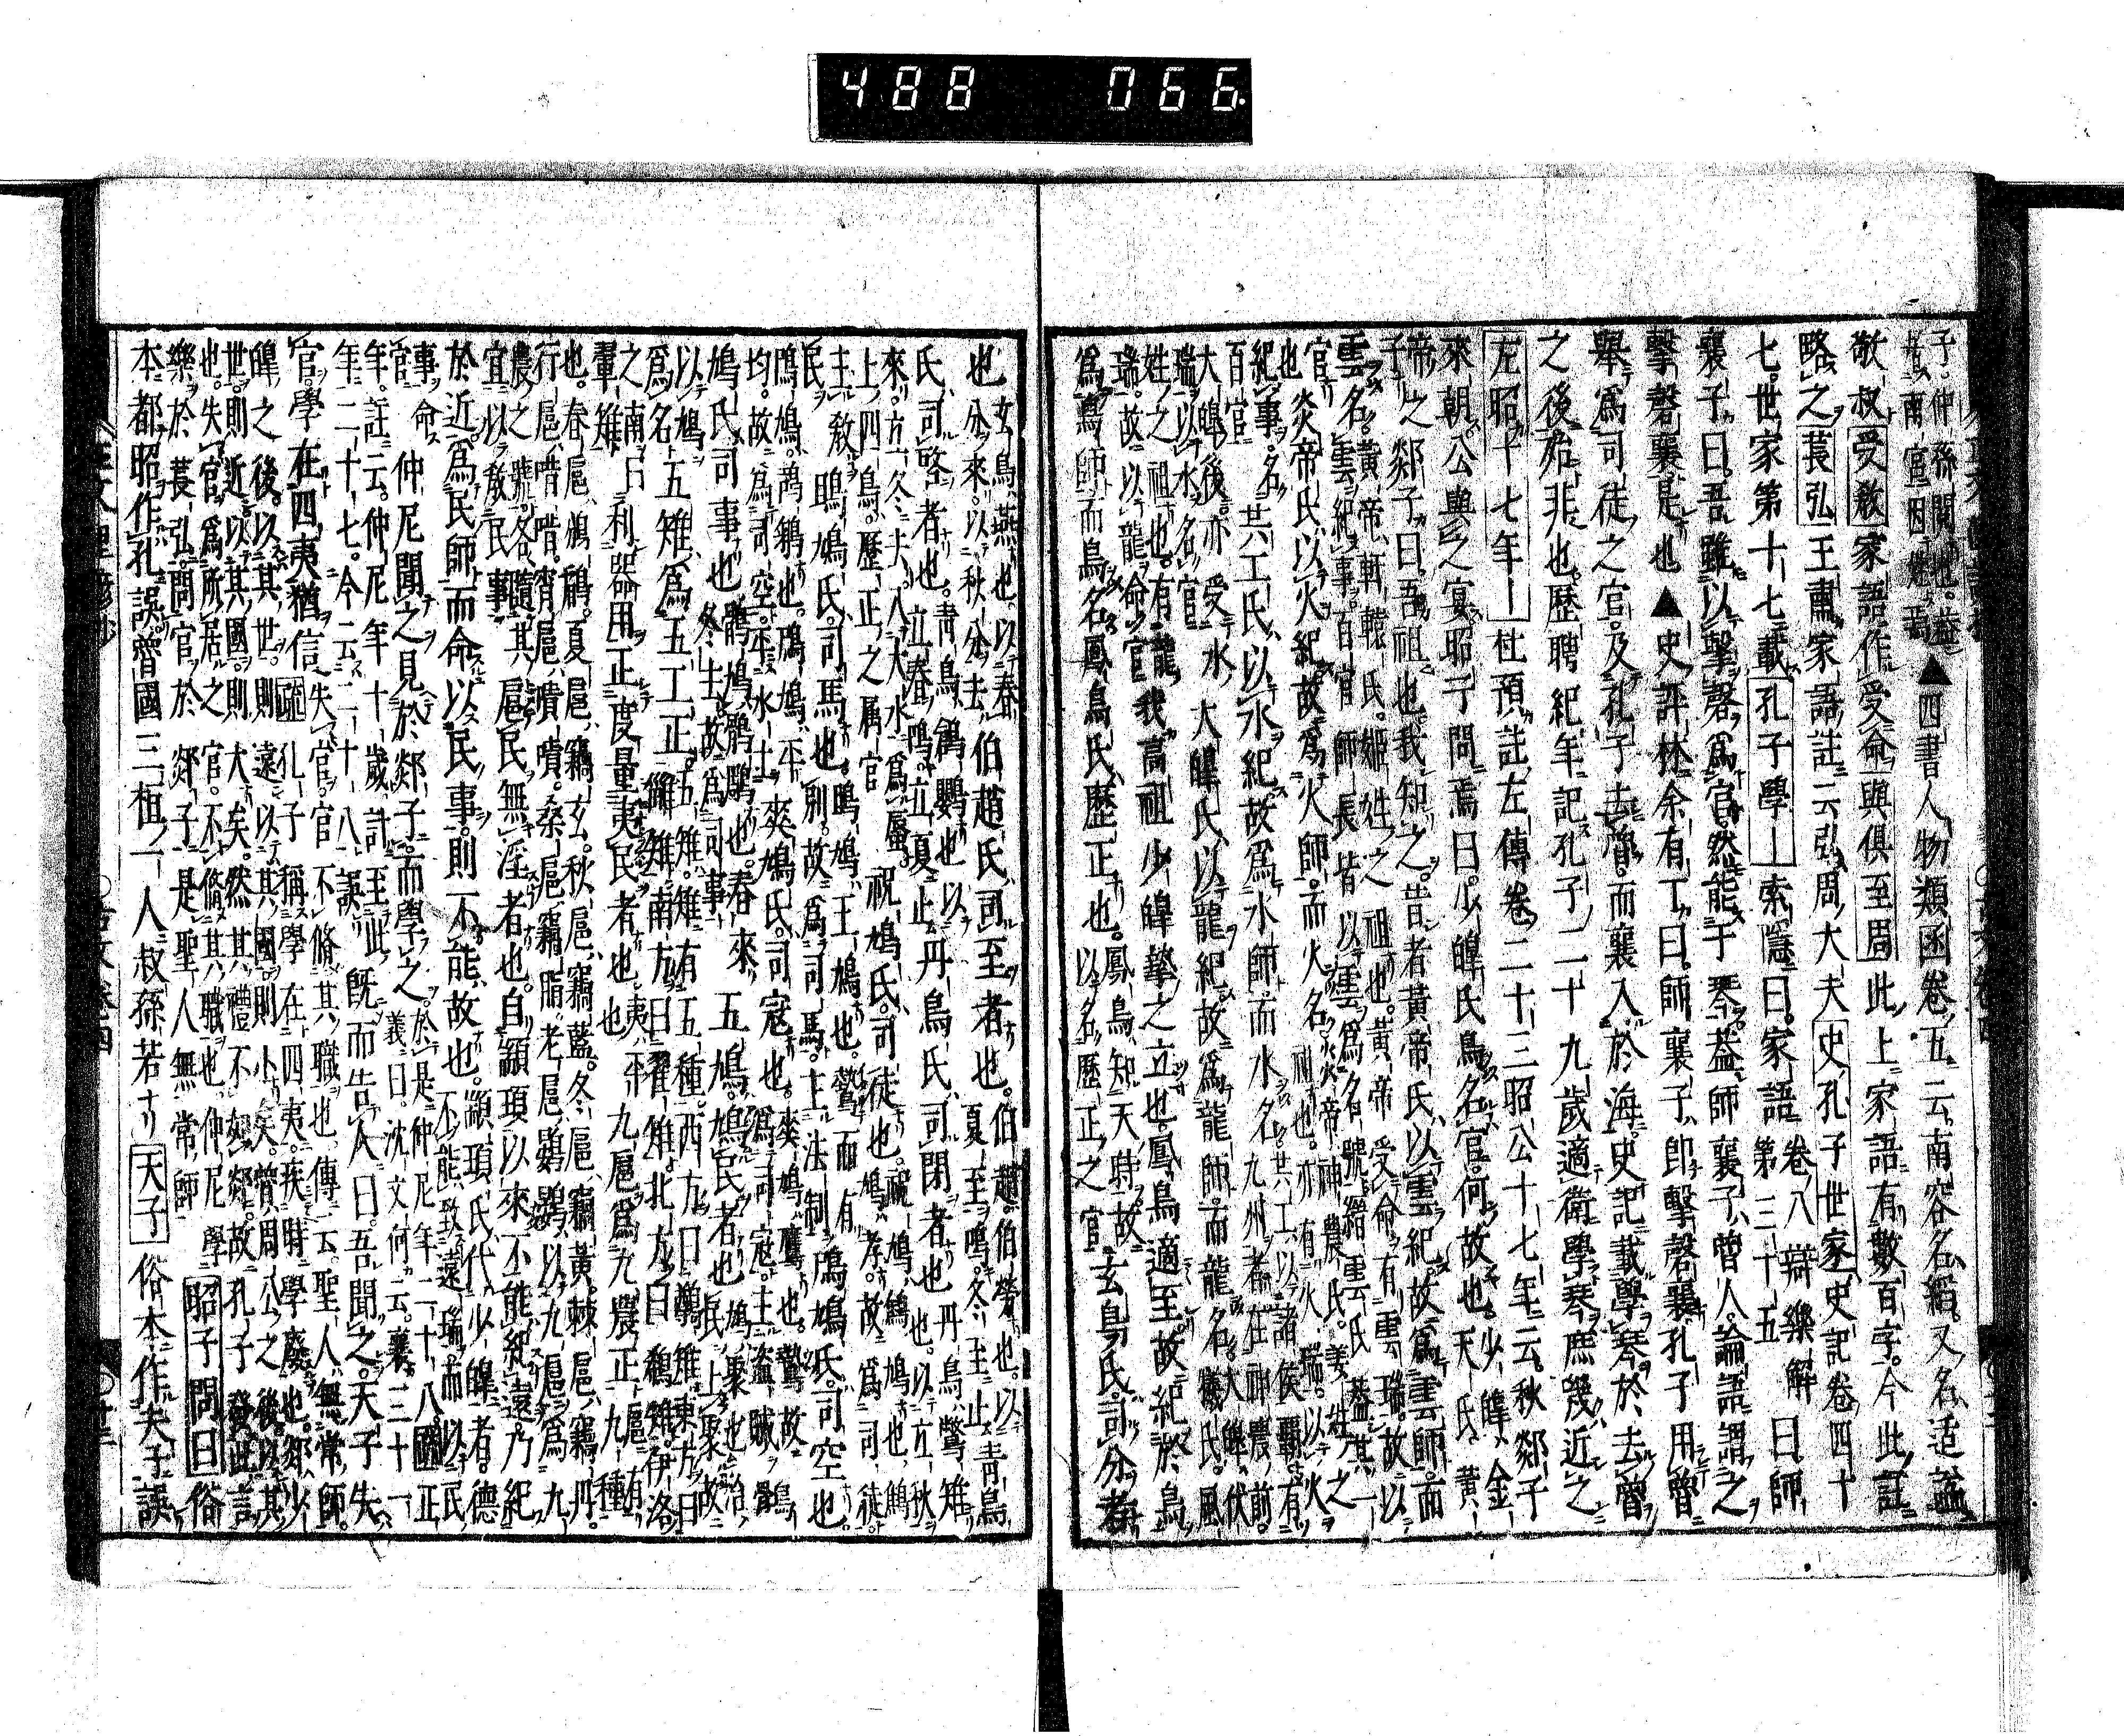 488 066
子仲孫閱也。益
者、南宮因姓焉▲四書人物類函卷五云、南容名縚。又名适諡
敬叔受敎家語作受命與俱至周此上家語有數百字。今此註
略之萇弘王肅家語註云弘周大夫史孔子世家史記卷四十
七。世家第十七載孔子學｜索隱曰。家語卷八辯樂解第三十五曰師
襄子曰。吾雖以擊磬爲官。然能于琴。蓋師襄子、曾人。論語謂之
擊磬襄是也▲史評林余有丁曰。師襄子、卽擊磬襄。孔子用魯
舉爲司徒之官。及孔子去魯。而襄入於海。史記載學琴於去魯
之後。殆非也。歷聘紀年記孔子二十九歲適衛學琴庶幾近之
左昭十七年｜杜預註左傳卷二十三昭公十七年云。秋郯子
來朝。公與之宴昭子問焉曰。少皞氏鳥名官。何故也少皞、金天氏、黃
帝之子郯子曰。吾祖也。我知之。昔者黃帝氏以雲紀故爲雲師。而
雲名。黃帝、軒轅氏。姬姓之祖也。黃帝受命有雲瑞。故以
雲紀事。百官師長皆以雲爲名號。縉雲氏蓋其一
官也炎帝氏以火紀故爲火師。而火名。炎帝神農氏。姜姓之
祖也。亦有火瑞。以火
紀事。名
百官共工氏以水紀故爲水師而水名。共工以諸侯霸有
九州者在神農前。
大皞後。亦受水
瑞以水名官大皞氏以龍紀故爲龍師。而龍名大皞、伏犧氏。風
姓之祖也。有龍
瑞。故以龍命官我高祖少皞摯之立也。鳳鳥適至故紀於鳥
爲鳥師而鳥名鳳鳥氏歷正也。鳳鳥知天時。故
以名歷正之官玄鳥氏。司分者
也玄鳥、燕也。以春
分來。以秋分去伯趙氏司至者也。伯趙。伯勞也。以
夏至鳴。冬至止靑鳥
氏司啓者也。靑鳥、鶬鷃也以
立春鳴。立夏止丹鳥氏司閉者也丹鳥、鷩雉
也。以立秋
來。立冬去。入大水爲蜃。
上四鳥。歷正之屬官祝鳩氏。司徒也。祝鳩鷦鳩也、鷦
鳩孝。故爲司徒。
主敎
民鴡鳩氏、司馬也。鴡鳩、王鳩也。鷙而有
別。故爲司馬。主法制鳲鳩氏。司空也
鳲鳩。鴶鵴也。鳲鳩、平
均。故爲司空。平水土爽鳩氏。司寇也。爽鳩、鷹也。鷙故
爲司寇。主盜賊鶻
鳩氏、司事也。鶻鳩、鶻鵰也。春來
冬去。故爲司事五鳩。鳩民者也鳩、聚也。治
民、上聚。故
以鳩
爲名五雉、爲五工正。五雉。雉有五種。西方曰鷷雉。東方曰
鶅雉。南方曰翟雉。北方曰鵗雉。伊洛
之南曰
翬雉利器用。正度量。夷民者也夷、平
也九扈爲九農正。扈有
九種
也。春扈、鳻鶞。夏扈、竊玄。秋扈、竊藍。冬扈、竊黃。棘扈、竊丹。
行扈、唶唶。宵扈、嘖嘖。桑扈、竊脂。老扈、鷃鷃。以九扈爲九
農之號。各隨其
宜以敎民事扈民無淫者也。自顓頊以來不能紀遠。乃紀
於近。爲民師而命以民事。則不能故也。顓頊氏、代少皞者。德
不能致遠瑞。而以民
事命
官仲尼聞之見於郯子而學之。於是仲尼年二十八。疏正
義曰。沈文何云。襄三十一
年。註云。仲尼年十歲計至此
年二十七。今云二十八誤既而告人曰。吾聞之。天子失
官。學在四夷猶信失官。官不脩其職也。傳云聖人無常師。
疏孔子稱學在四夷。疾時學廢也。郯、少
皞之後。以其世。則遠以其國則小矣。魯周公之後。以其
世。則近以其國則大矣。然其禮不如郯故孔子發此言
也。失官爲所居之官。不脩其職也。仲尼學
樂於萇弘。問官於郯子是聖人無常師昭子問曰俗
本都昭作孔誤曾國三桓一人叔孫若ナリ天子俗本作夫子誤